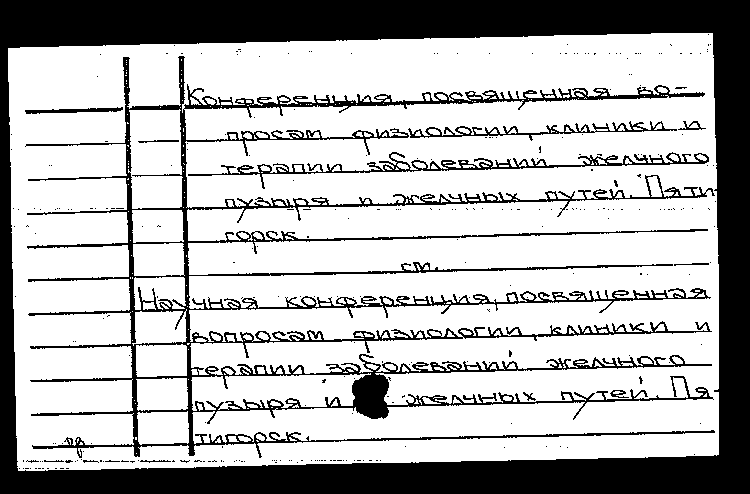 Конференция, посвященная во-
просам физиологии, клиники и
терапии заболеваний желчного
пузыря и желчных путей. Пяти-
горск.
см.
Научная конференция, посвященная
вопросам физиологии, клиники и
терапии заболеваний желчного
пузыря и желчных путей. Пя-
тигорск.